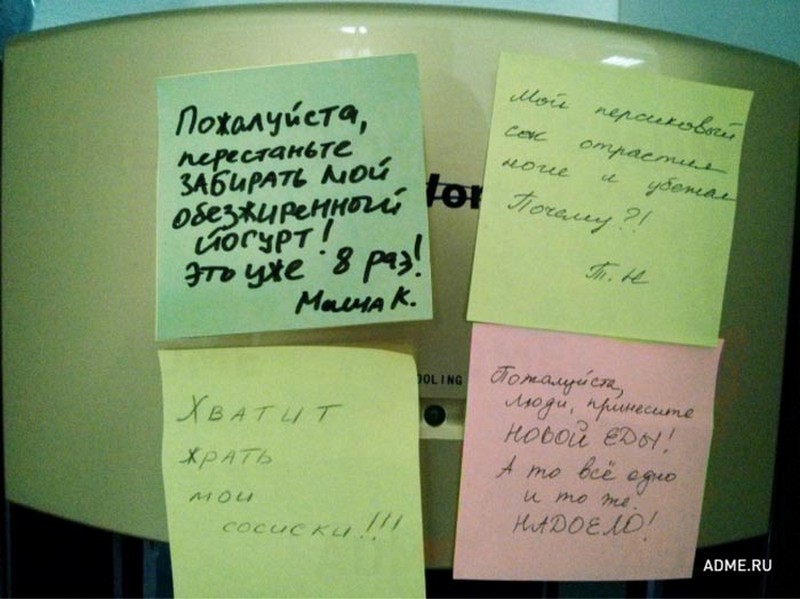 Пожалуйста,
перестаньте
ЗАБИРАТЬ МОЙ
обезжиренный
йогурт!
Это уже 8 раз!
Маша К.
Мой персиковый
сок отрастил
ноги и убежал
Почему?!
Т.Н
ХВАТИТ
ЖРАТЬ
МОИ
СОСИСКИ!!!
OOLING
Пожалуйста,
люди, принесите
НОВОЙ ЕДЫ!
А то всё одно
и то же.
НАДОЕЛО!
ADME.RU